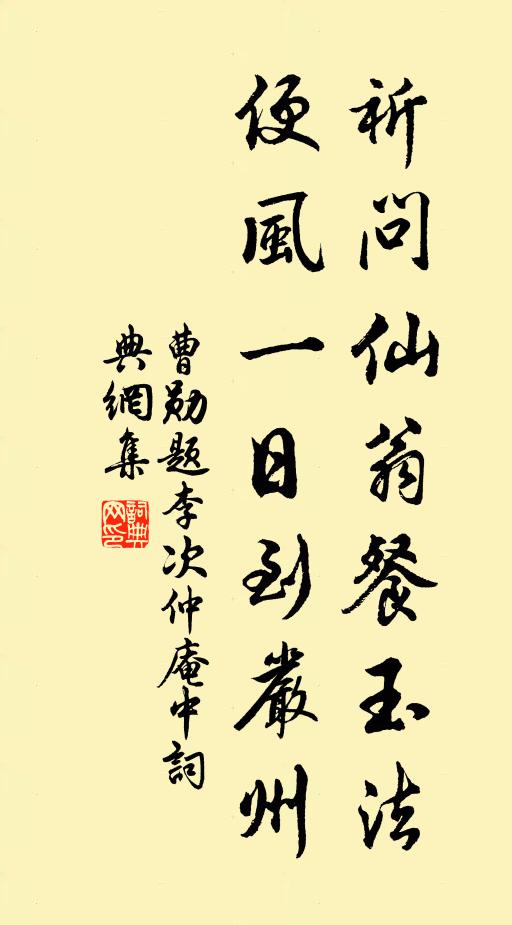 祈問仙翁餐玉法
便風一日到嚴州
曹勛題李次仲庵中詞
典網集
詞典
网印